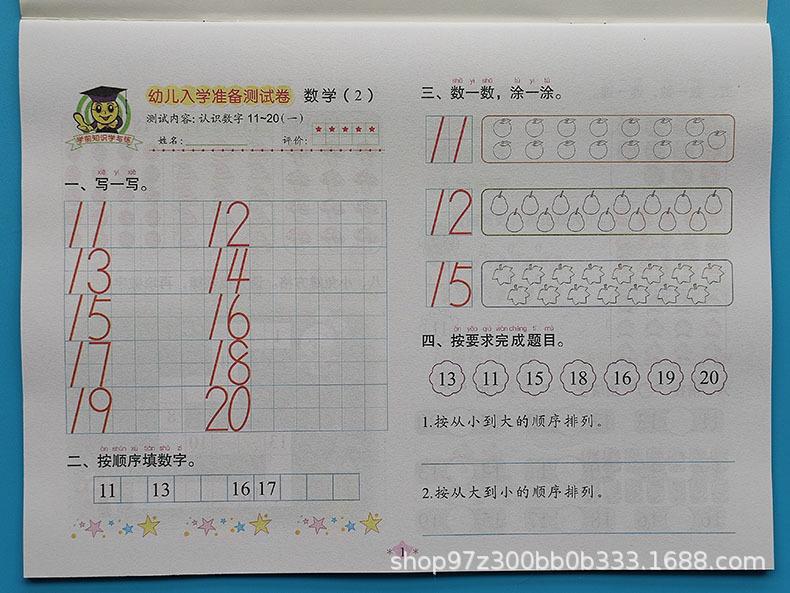 幼儿入学准备测试卷 数学（2）
测试内容：认识数字 11~20（一）
姓名： 评价：
学前知识学与练
xiě yi xiě
一、写一写。
11 12
13 14
15 16
17 18
19 20
àn shùn xù tián shù zì
二、按顺序填数字。
11 13 16 17
shǔ yi shǔ tú yi tú
三、数一数，涂一涂。
11
12
15
àn yāo qiú wán chéng tí mù
四、按要求完成题目。
13 11 15 18 16 19 20
1.按从小到大的顺序排列。
2.按从大到小的顺序排列。
1
shop97z300bb0b333.1688.com